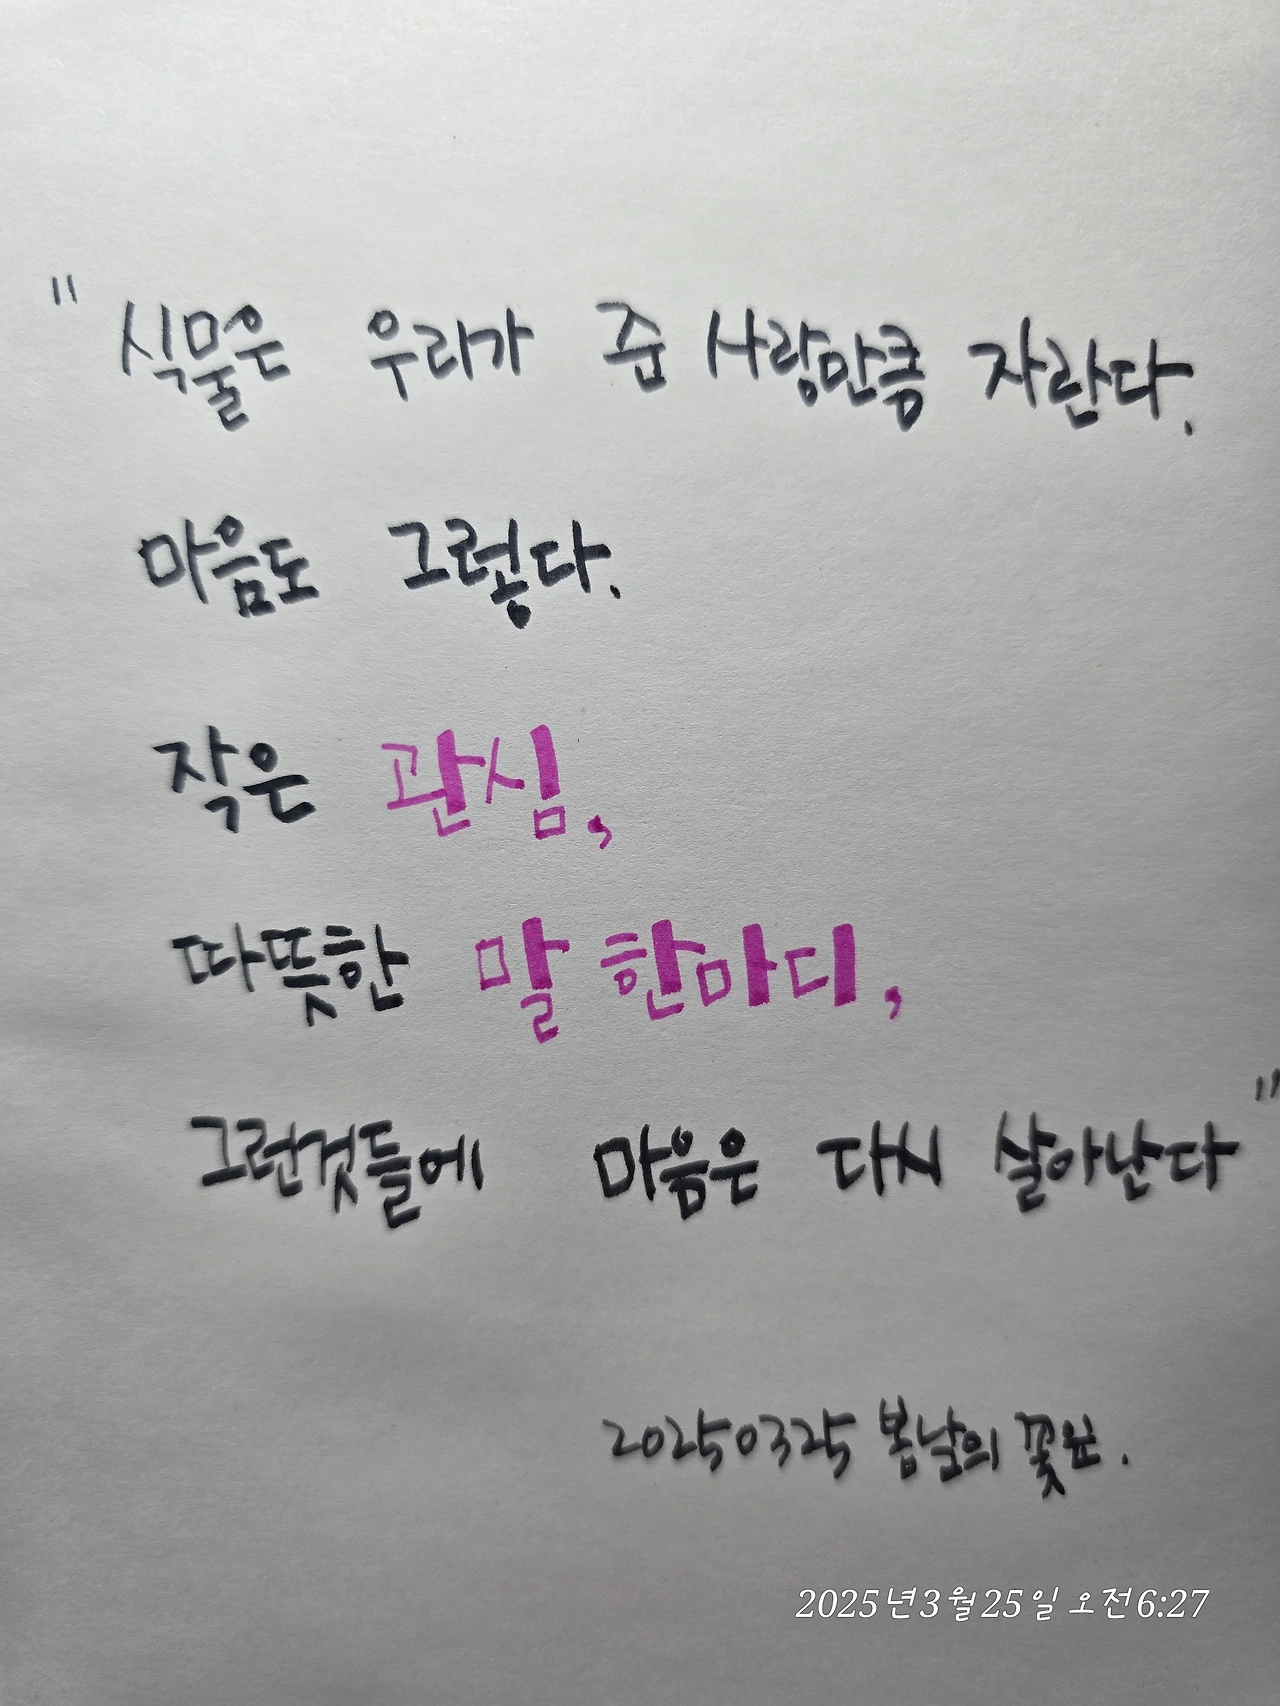 "식물은 우리가 준 사랑만큼 자란다.
마음도 그렇다.
작은 관심,
따뜻한 말 한마디,
그런것들에 마음은 다시 살아난다"
20250325 봄날의 꽃
2025년 3월 25일 오전 6:27